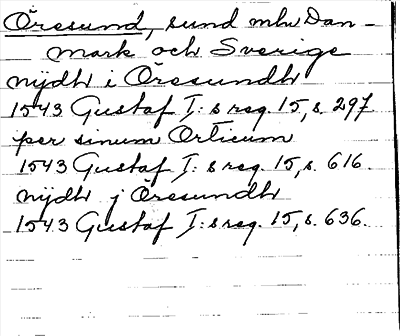 Öresund, sund mlu Dan-
mark och Sverige
nijdh i Öresundh
1543 Gustaf I:s reg. 15, s. 297
per sinum Orticum
1543 Gustaf I:s reg. 15, s. 616.
nijdh j Öresundh
1543 Gustaf I:s reg. 15, s. 636.